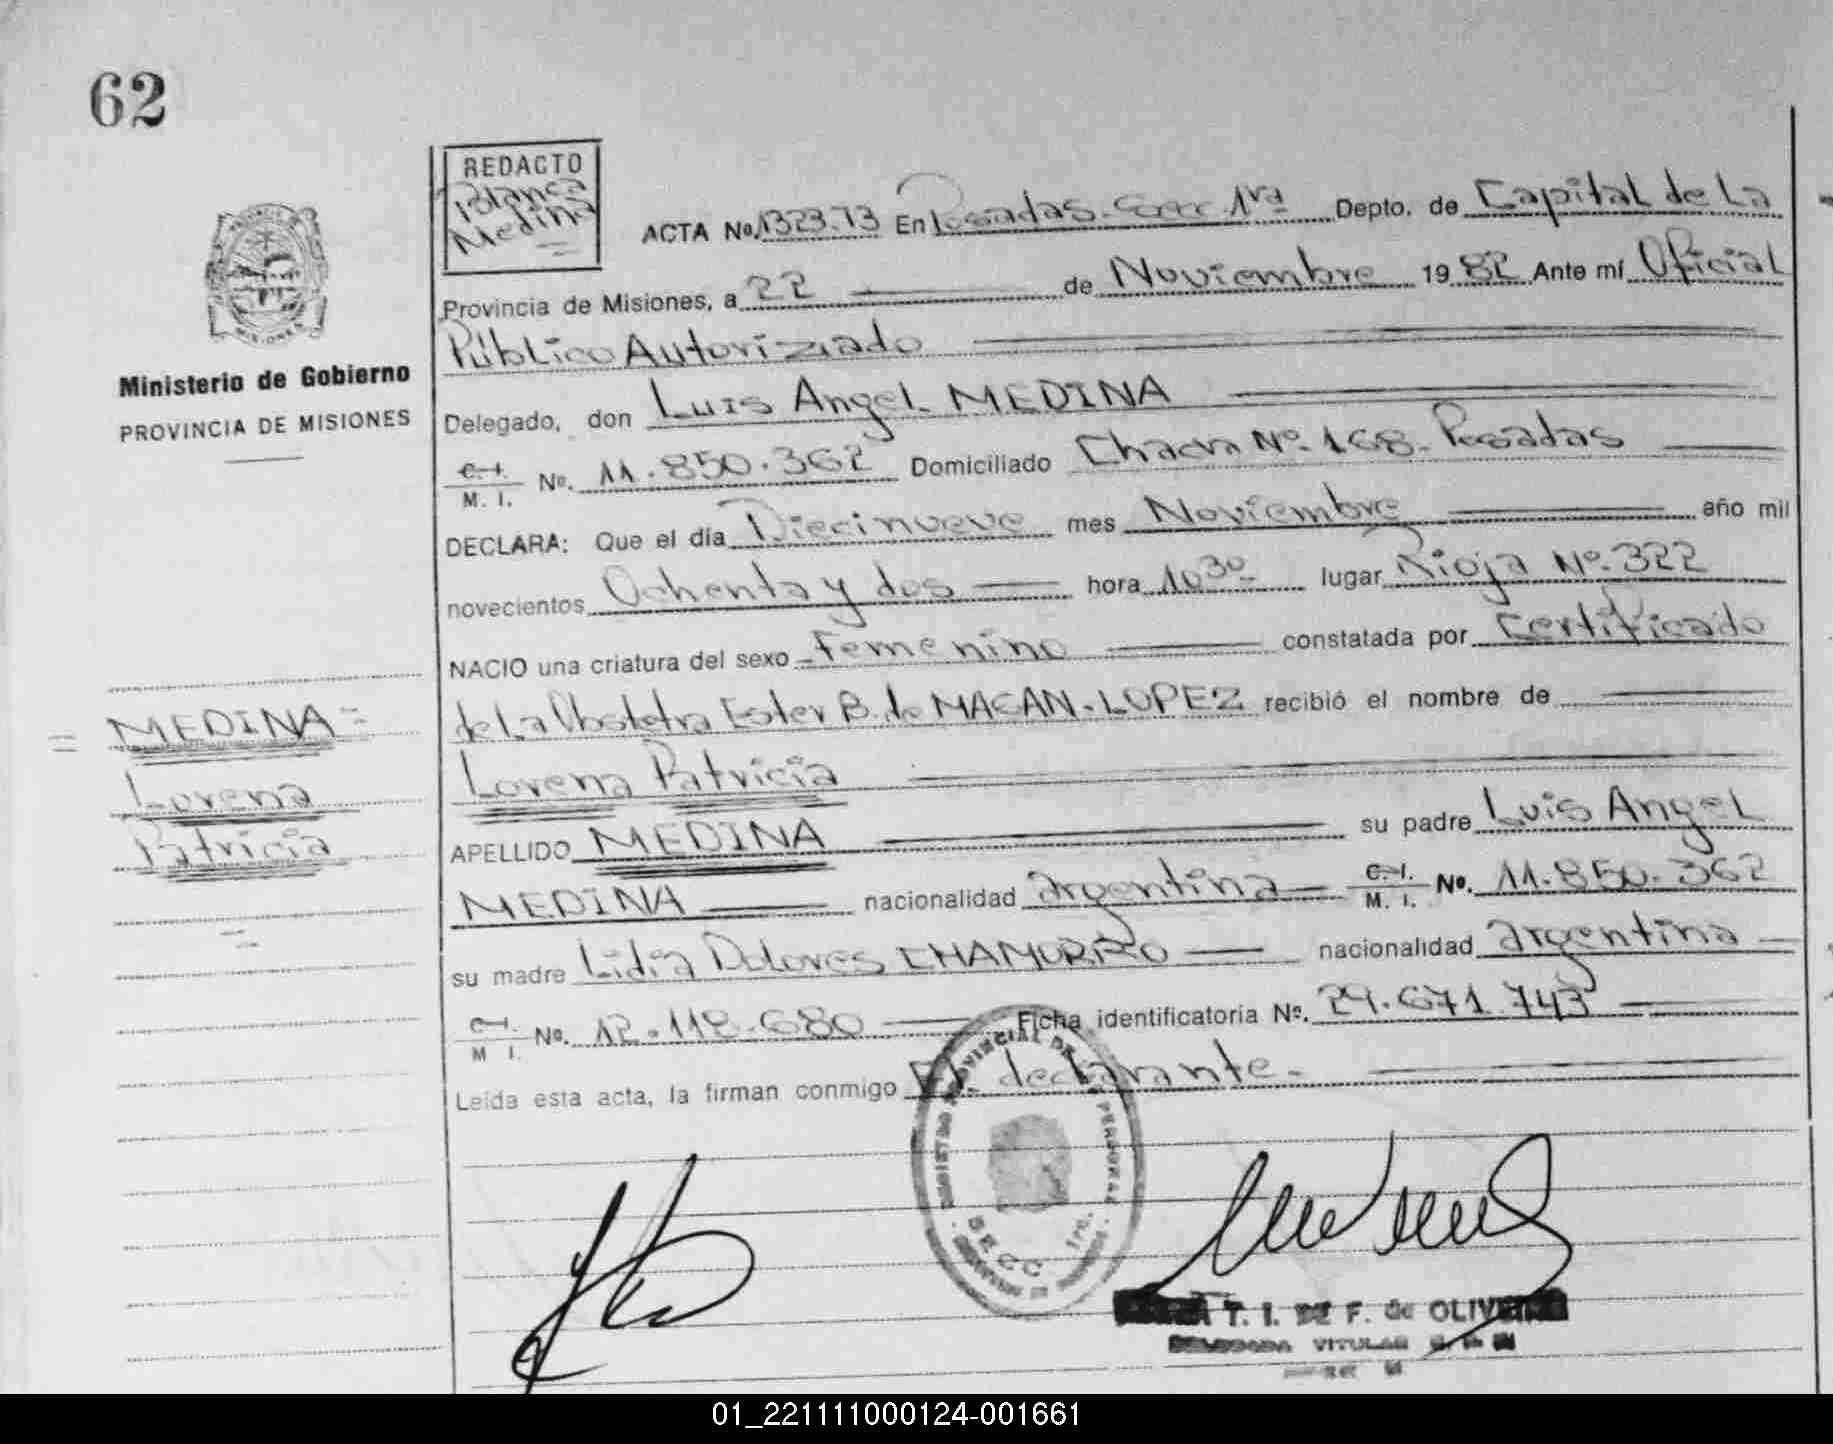 62
REDACTO
Blanca
Medina
ACTA No. 1323.T3 En Posadas-Secc. 1ra Depto. de Capital de La
Provincia de Misiones, a 22 de Noviembre 1982 Ante mí Oficial
Público Autorizado
Ministerio de Gobierno
PROVINCIA DE MISIONES
Delegado, don Luis Angel MEDINA
C.I. M. I. No. 11.850.362 Domiciliado Chacra No. 168. Posadas
DECLARA: Que el día Diecinueve mes Noviembre año mil
novecientos Ochenta y dos hora 10 30 lugar Rioja No. 322
NACIO una criatura del sexo Femenino constatada por Certificado
de La Obstetra Ester B. de MACAN-LOPEZ recibió el nombre de
=MEDINA=
Lorena
Patricia
Lorena Patricia
APELLIDO MEDINA su padre Luis Angel
MEDINA nacionalidad argentina C.I. M. I. No. 11.850.362
su madre Lidia Dolores CHAMORRO nacionalidad argentina
C.I. M I. No. 12.118.680 Ficha identificatoria No. 29.671.743
Leída esta acta, la firman conmigo El declarante.
REGISTRO PROVINCIAL DE PERSONAS
SECC. 1ra.
T. I. DE F. de OLIVEIRA
DELEGADA TITULAR
01_221111000124-001661